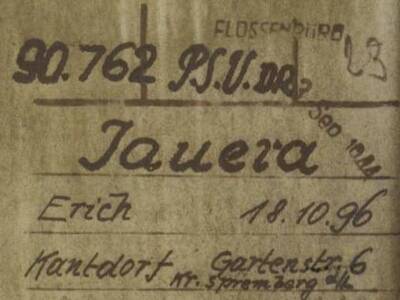 FLOSSENBÜRG
23
90.762 P.S.V.DR.
Sep 1944
Jauera
Erich 18.10.96
Kantdorf Gartenstr. 6
Kr. Spremberg d/L